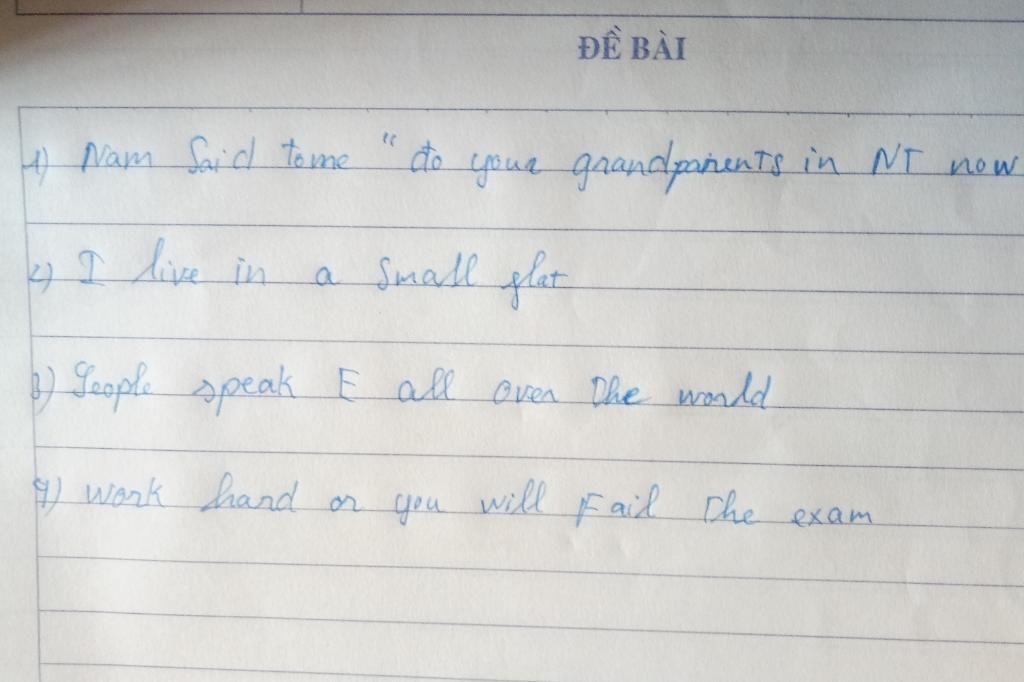 ĐỀ BÀI
1) Nam Said to me "do your grandparents in NT now
2) I live in a small flat
3) People speak E all over the world
4) work hard or you will Fail the exam